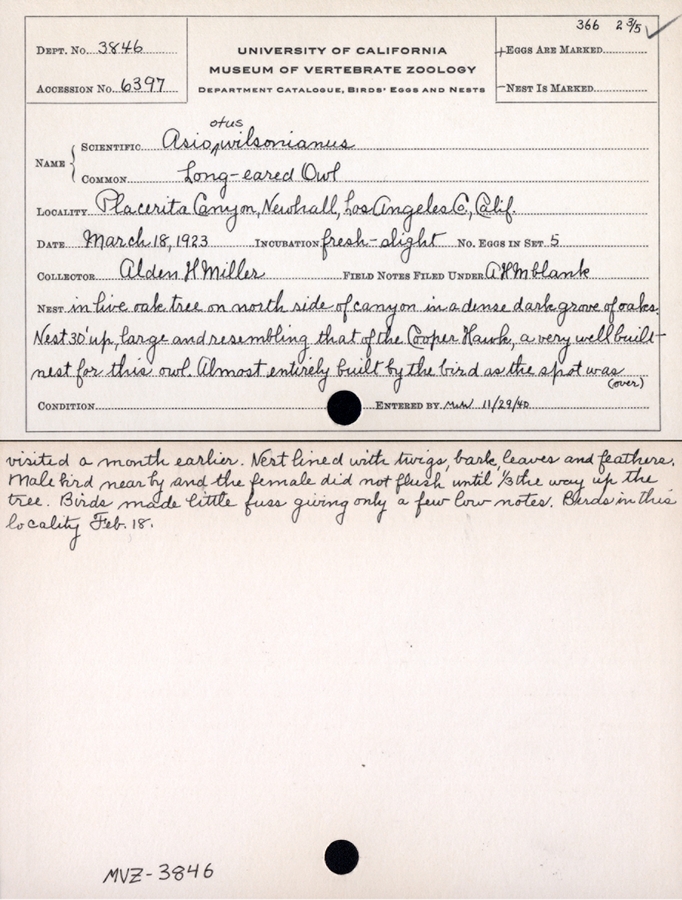 366 2 3/5 ✓
DEPT. NO. 3846
UNIVERSITY OF CALIFORNIA
+EGGS ARE MARKED
MUSEUM OF VERTEBRATE ZOOLOGY
ACCESSION NO. 6397
DEPARTMENT CATALOGUE, BIRDS' EGGS AND NESTS
-NEST IS MARKED
otus
NAME { SCIENTIFIC Asio wilsonianus
COMMON Long-eared Owl
LOCALITY Placerita Canyon, Newhall, Los Angeles Co., Calif.
DATE March 18, 1923 INCUBATION fresh-slight NO. EGGS IN SET 5
COLLECTOR Alden H Miller FIELD NOTES FILED UNDER AHM blank
NEST in live oak tree on north side of canyon in a dense dark grove of oaks.
Nest 30' up, large and resembling that of the Cooper Hawk, a very well built
nest for this owl. Almost entirely built by the bird as the spot was
(over)
CONDITION ENTERED BY MWW 11/29/40
visited a month earlier. Nest lined with twigs, bark, leaves and feathers.
Male bird near by and the female did not flush until 1/3 the way up the
tree. Birds made little fuss giving only a few low notes. Birds in this
locality Feb. 18.
MVZ-3846